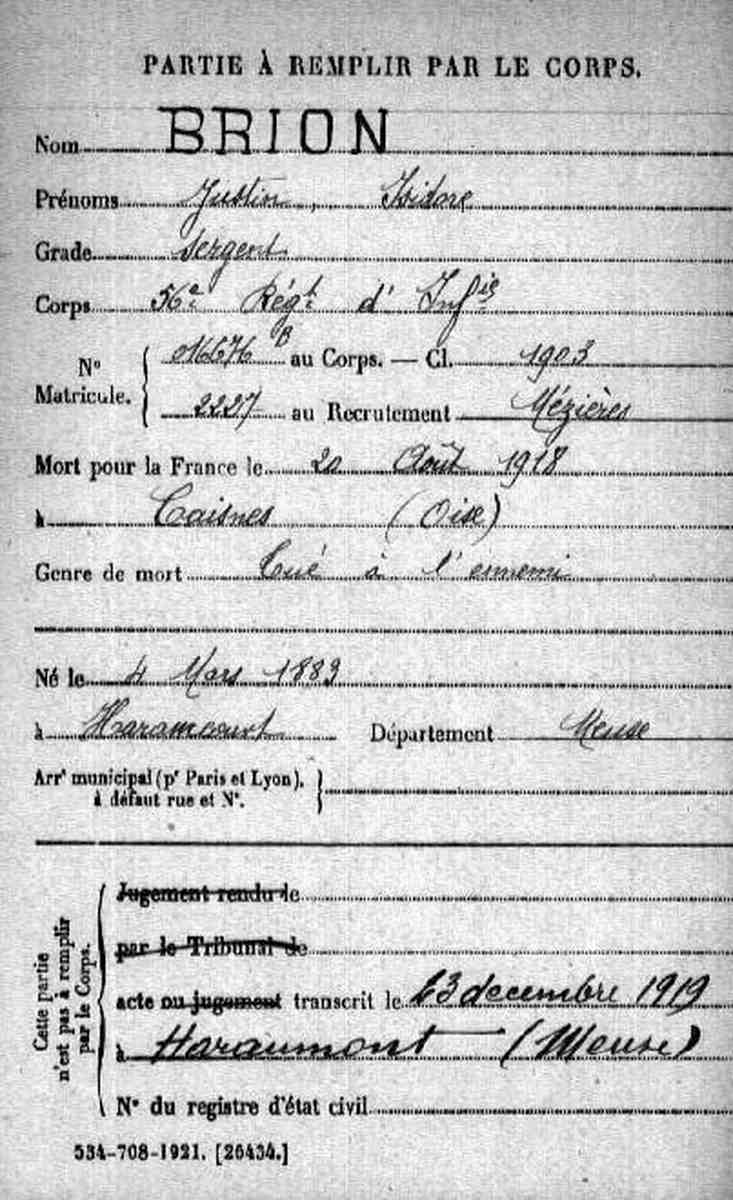 PARTIE À REMPLIR PAR LE CORPS.
Nom BRION
Prénoms Justin, Isidore
Grade Sergent
Corps 56e Régt d' Infie
No Matricule. 016676 B au Corps. — Cl. 1903
2227 au Recrutement Mézières
Mort pour la France le 20 Août 1918
à Caisnes (Oise)
Genre de mort Tué à l'ennemi
Né le 4 Mars 1883
à Haramcourt Département Meuse
Arrt municipal (pr Paris et Lyon),
à défaut rue et No.
Cette partie
n'est pas à remplir
par le Corps.
Jugement rendu le
par le Tribunal de
acte ou jugement transcrit le 13 decembre 1919
à Haraumont (Meuse)
No du registre d'état civil
534-708-1921. [26434.]